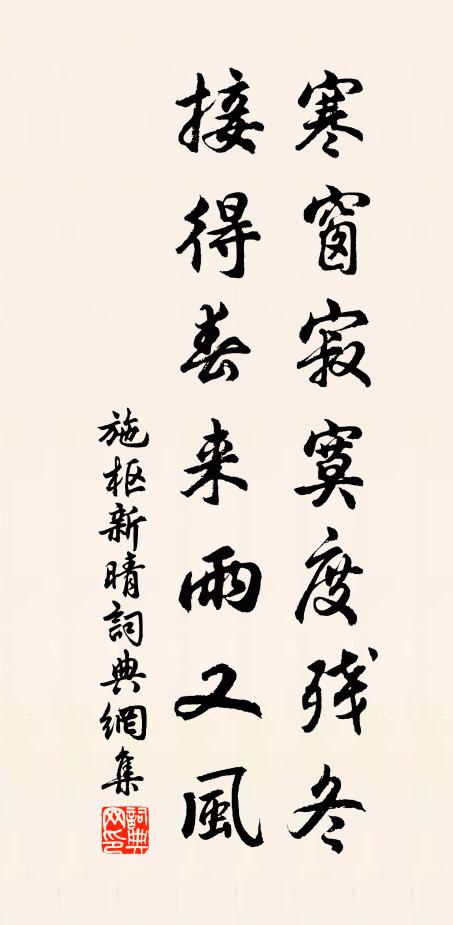 寒窗寂寞度残冬
接得春来雨又風
施枢新晴詞典網集
詞典网印